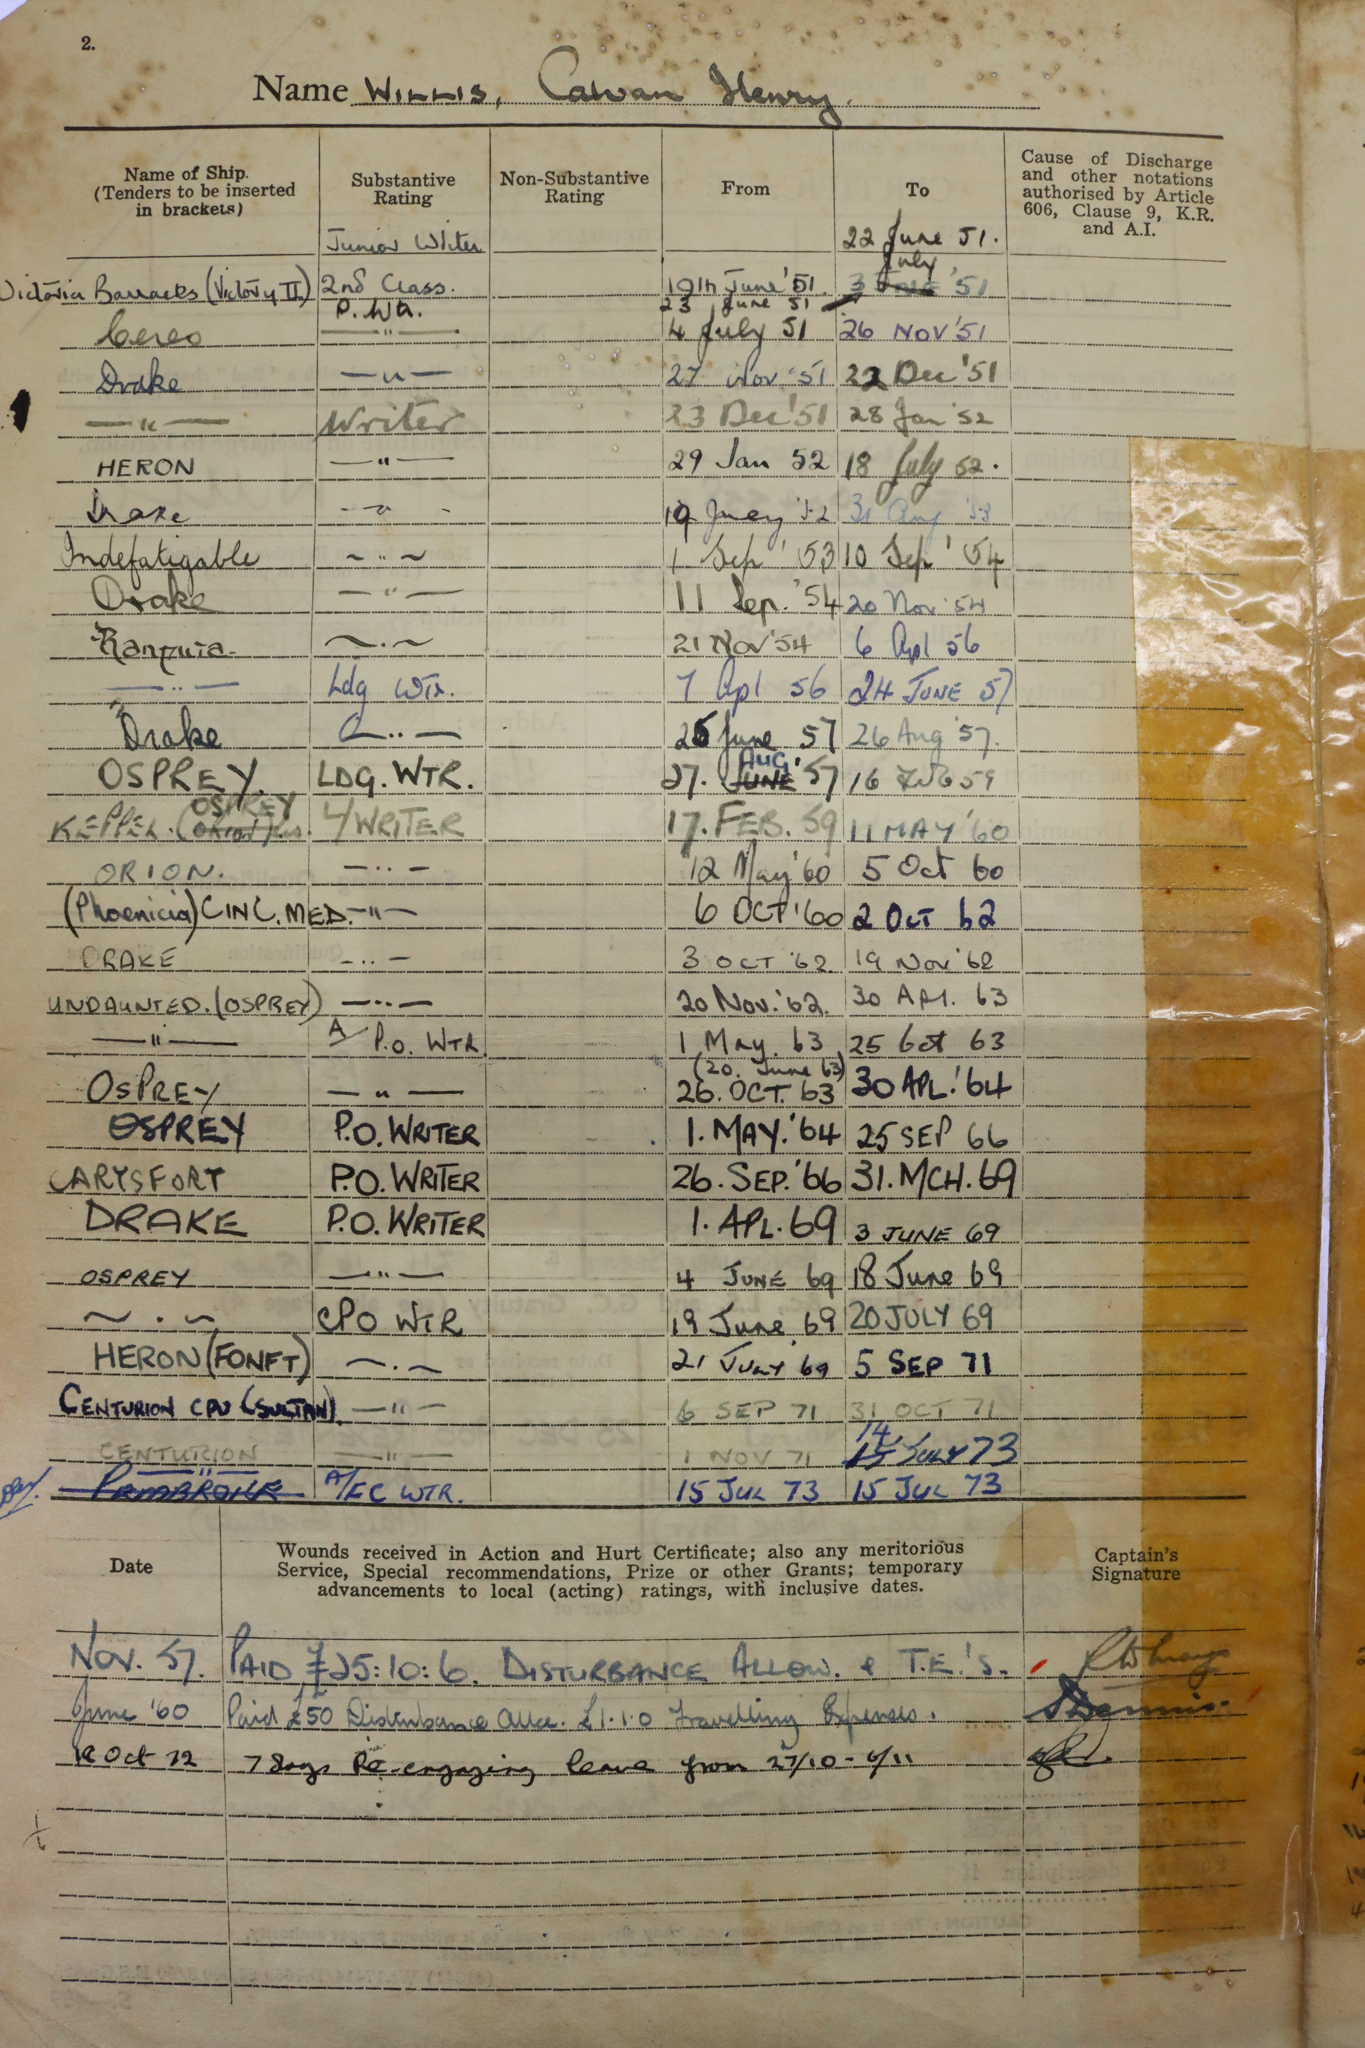 2.
Name WILLIS, Calvan Henry.
Name of Ship. (Tenders to be inserted in brackets) Substantive Rating Non-Substantive Rating From To Cause of Discharge and other notations authorised by Article 606, Clause 9, K.R. and A.I.
Junior Writer 22 June 51.
July
Victoria Barracks (Victory II) 2nd Class. 19th June '51 3 June '51
P. Wtr. 23 June 51
Ceres —"— 4 July 51 26 NOV '51
Drake —"— 27 Nov '51 22 Dec '51
—"— Writer 23 Dec '51 28 Jan '52
HERON —"— 29 Jan 52 18 July 52.
Drake -"- 19 July '52 31 Aug '53
Indefatigable ~"~ 1 Sep '53 10 Sep '54
Drake —"— 11 Sep. '54 20 Nov '54
Ranpura ~"~ 21 Nov '54 6 Apl 56
—"— Ldg Wtr. 7 Apl 56 24 JUNE 57
Drake —"— 25 June 57 26 Aug '57.
AUG.
OSPREY. LDG. WTR. 27. JUNE '57 16 Feb 59
OSPREY
KEPPEL. (Orion) L/WRITER 17. FEB. 59 11 MAY '60
ORION. —"— 12 May '60 5 Oct 60
(Phoenicia) CINC. MED. —"— 6 OCT '60 2 OCT 62
DRAKE —"— 3 OCT '62 19 Nov '62
UNDAUNTED. (OSPREY) —"— 20 Nov. '62. 30 Apl. 63
—"— A/P.O. WTR. 1 May. 63 25 Oct 63
(20. June 63)
OSPREY —"— 26. OCT. 63 30 APL. '64
OSPREY P.O. WRITER 1. MAY. '64 25 SEP 66
CARYSFORT P.O. WRITER 26. SEP. '66 31. MCH. 69
DRAKE P.O. WRITER 1. APL. 69 3 JUNE 69
OSPREY —"— 4 JUNE 69 18 June 69
~"~ CPO WTR 19 June 69 20 JULY 69
HERON (FONFT) ~"~ 21 JULY 69 5 SEP 71
CENTURION CPU (SULTAN). —"— 6 SEP 71 31 OCT 71
14
CENTURION —"— 1 NOV 71 15 JULY 73
—"—
PEMBROKE A/FC WTR. 15 JUL 73 15 JUL 73
Date Wounds received in Action and Hurt Certificate; also any meritorious Service, Special recommendations, Prize or other Grants; temporary advancements to local (acting) ratings, with inclusive dates. Captain's Signature
NOV. 57. PAID £25:10:6. DISTURBANCE ALLOW. & T.E.'S.
June '60 Paid £50 Disturbance Allce. £1.1.0 Travelling Expenses.
18 Oct 72 7 days Re-engaging leave from 27/10 - 4/11